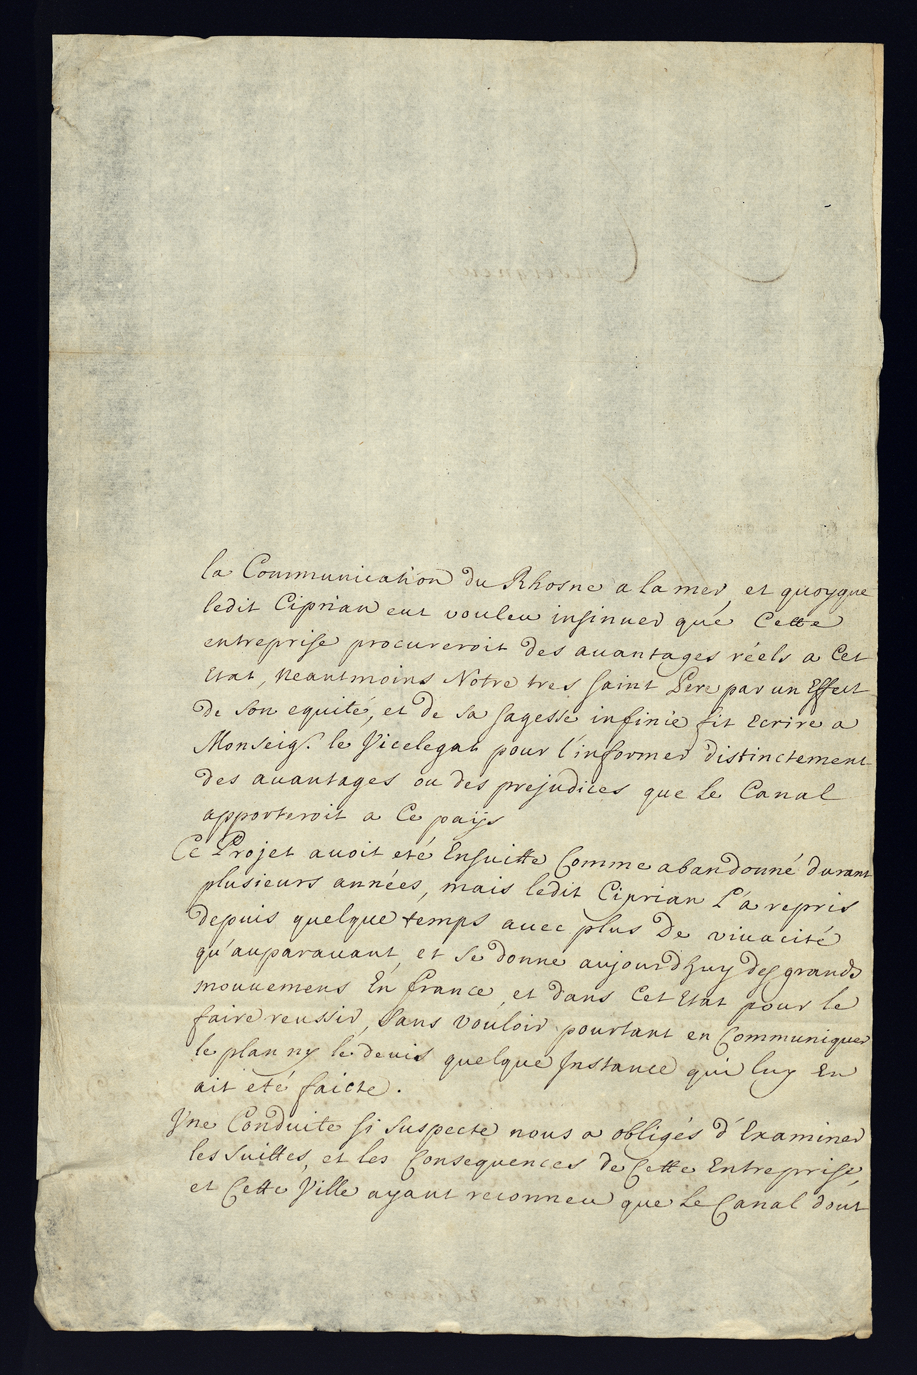 la Communication du Rhosne a la mer, et quoyque
ledit Ciprian eut vouleu insinuer que Cette
entreprise procureroit des auantages réels a Cet
Etat, Neantmoins Notre tres saint Pere par un Effect
de son equité, et de sa sagesse infinie fit Ecrire a
Monseigr. le Vicelegat pour l'informer distinctement
des auantages ou des prejudices que le Canal
apporteroit a Ce païjs
Ce Projet auoit eté Ensuitte Comme abandonné durant
plusieurs années, mais ledit Ciprian L'a repris
depuis quelque temps auec plus De viuacité
qu'auparauant, et se donne aujourdhuy des grands
mouuemens En france, et dans Cet Etat pour le
faire reussir, sans Vouloir pourtant en Communiquer
le plan ny le devis quelque Instance qui luy En
ait eté faicte.
Vne Conduite si suspecte nous a obligés d'Examiner
les suittes, et les Consequences de Cette Entreprise,
et Cette Ville ayant reconneu que Le Canal dont